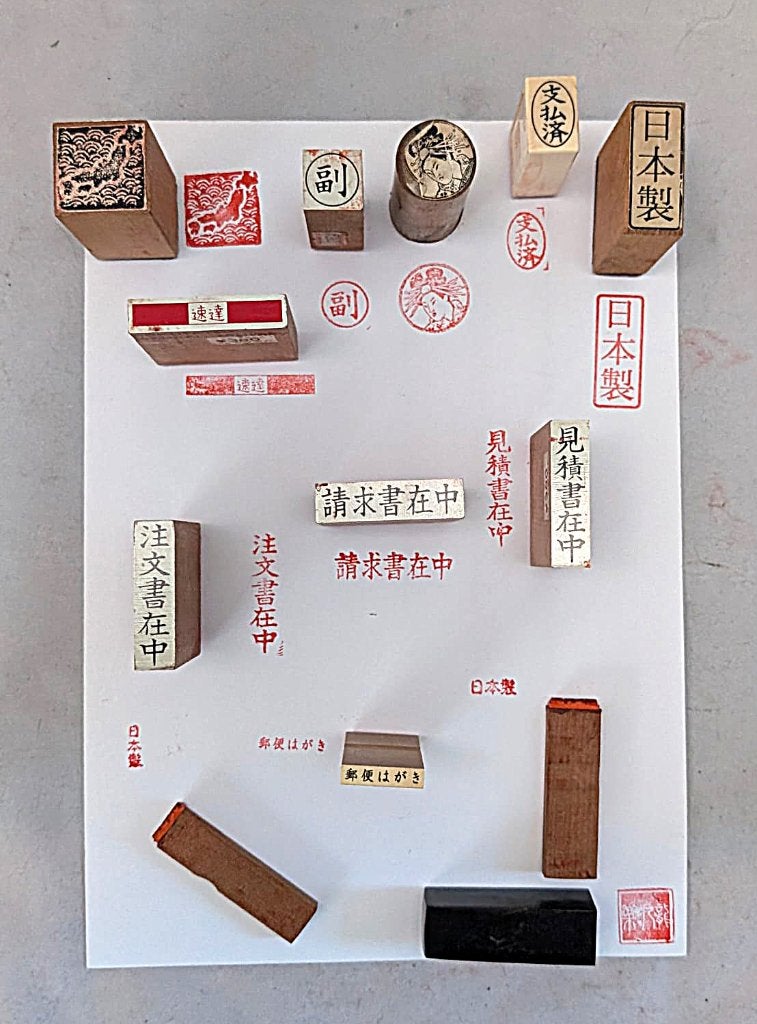 副
支払済
日本製
支払済
速達
副
日本製
速達
見積書在中
見積書在中
請求書在中
注文書在中
注文書在中
請求書在中
日本製
日本製
郵便はがき
郵便はがき